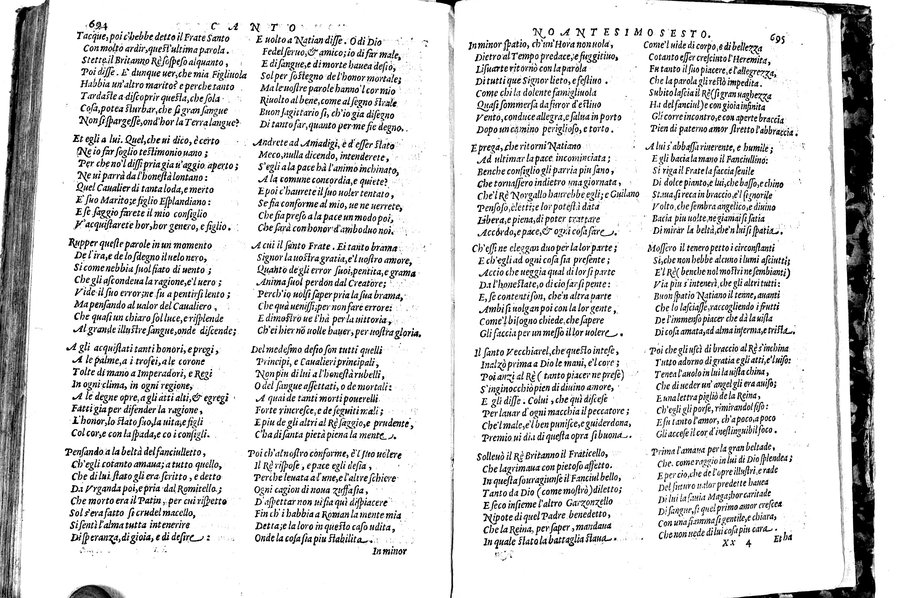 694
CANTO
Tacque, poi c'hebbe detto il Frate Santo
Con molto ardir, quest'ultima parola.
Stette, il Britanno Rè sospeso alquanto,
Poi disse. E' dunque uer, che mia Figliuola
Habbia un'altro marito? e perche tanto
Tardaste a discoprir questa, che sola
Cosa, potea sturbar, che sì gran sangue
Non si spargesse, ond'hor la Terra langue?
Et egli a lui. Quel, che ui dico, è certo
Ne io far soglio testimonio uano;
Per che no'l dissi pria già u'aggio aperto;
Ne ui parrà da l'honestà lontano:
Quel Caualier di tanta loda, e merto
E' suo Marito; e figlio Esplandiano:
E se saggio farete il mio consiglio
V'acquistarete hor, hor genero, e figlio.
Rupper queste parole in un momento
De l'ira, e de lo sdegno il uelo nero,
Si come nebbia suol fiato di uento;
Che gli ascondeua la ragione, e'l uero;
Vide il suo error; ne fu a pentirsi lento;
Ma pensando al ualor del Caualiero,
Che quasi un chiaro sol luce, e risplende
Al grande illustre sangue, onde discende;
A gli acquistati tanti honori, e pregi,
A le palme, a i trofei, a le corone
Tolte di mano a Imperadori, e Regi
In ogni clima, in ogni regione,
A le degne opre, a gli atti alti, & egregi
Fatti già per difender la ragione,
L'honor, lo stato suo, la uita, e figli
Col cor, e con la spada, e co i consigli.
Pensando a la beltà del fanciulletto,
Ch'egli cotanto amaua; a tutto quello,
Che di lui stato gli era scritto, e detto
Da Vrganda poi, e pria dal Romitello;
Che morto era il Patin, per cui rispetto
Sol s'era fatto sì crudel macello,
Si sentì l'alma tutta intenerire
Di speranza, di gioia, e di desire:
E uolto a Natian disse. O di Dio
Fedel seruo, & amico; io di far male,
E di sangue, e di morte hauea desio,
Sol per sostegno de l'honor mortale;
Ma le uostre parole hanno'l cor mio
Riuolto al bene, come al segno strale
Buon sagittario sì, ch'io già disegno
Di tanto far, quanto per me sie degno.
Andrete ad Amadigi, è d'esser stato
Meco, nulla dicendo, intenderete,
S'egli a la pace hà l'animo inchinato,
A la comune concordia, e quiete?
E poi c'haurete il suo uoler tentato,
Se sia conforme al mio, ue ne uerrete,
Che sia preso a la pace un modo poi,
Che sarà con honor d'ambodue noi.
A cui il santo Frate. Ei tanto brama
Signor la uostra gratia, e'l uostro amore,
Quanto de gli error suoi, pentita, e grama
Anima suol perdon dal Creatore;
Perch'io uolsi saper pria la sua brama,
Che quà uenissi, per non fare errore:
E dimostro ue l'hà per la uittoria,
Ch'ei hier nò uolle hauer, per uostra gloria.
Del medesmo desio son tutti quelli
Principi, e Cavalieri principali,
Non piu di lui a l'honestà rubelli,
O del sangue assettati, o de mortali:
A quai de tanti morti pouerelli
Forte rincresce, e de seguiti mali;
E piu de gli altri al Rè saggio, e prudente,
C'hà di santa pietà piena la mente.
Poi ch'al nostro conforme, è'l suo uolere
Il Rè rispose, e pace egli desia,
Perche leuata a l'une, e l'altre schiere
Ogni cagion di noua zuffa sia,
D'aspettar non ui sia quì dispiacere
Fin ch'i habbia a Roman la mente mia
Detta; e la loro in questo caso udita,
Onde la cosa sia piu stabilita.
In minor
NOANTESIMOSESTO.
695
In minor spatio, ch'un'Hora non uola,
Dietro al Tempo predace, e fuggitiuo,
Lisuarte ritornò con la parola
Di tutti que Signor lieto, e festiuo.
Come chi la dolente famigliuola
Quasi sommersa da furor d'estiuo
Vento, conduce allegra, e salua in porto
Dopo un camino periglioso, e torto.
E prega, che ritorni Natiano
Ad ultimar la pace incominciata;
Benche consiglio gli parria piu sano,
Che tornassero indietro una giornata,
Che'l Rè Norgallo haurebbe egli; e Guilano
Pensoso, eletti; e lor potestà data
Libera, e piena, di poter trattare
Accordo, e pace, & ogni cosa fare.
Ch'essi ne eleggan duo per la lor parte;
E ch'egli ad ogni cosa sia presente;
Accio che ueggia qual di lor si parte
Da l'honestate, o di cio far si pente:
E, se contenti son, che'n altra parte
Ambi uolgan poi con la lor gente,
Come'l bisogno chiede, che sapere
Gli faccia per un messo il lor uolere.
Il santo Vecchiarel, che questo intese,
Inalzò prima a Dio le mani, e'l core;
Poi anzi al Rè (tanto piacer ne prese)
S'inginocchiò pien di diuino amore,
E gli disse. Colui, che quì discese
Per lauar d'ogni macchia il peccatore;
Che'l male, e'l ben punisce, e guiderdona,
Premio ui dia di questa opra sì buona.
Solleuò il Rè Britanno il Fraticello,
Che lagrimaua con pietoso affetto.
In questa souragiunse il Fanciul bello,
Tanto da Dio (come mostrò) diletto;
E seco insieme l'altro Garzonzello
Nipote di quel Padre benedetto,
Che la Reina, per saper, mandaua
In quale stato la battaglia staua.
Come'l uide di corpo, e di bellezza
Cotanto esser cresciuto l'Heremita,
Fu tanto il suo piacere, e l'allegrezza,
Che la parola gli restò impedita.
Subito lascia il Rè (sì gran uaghezza
Ha del fanciul) e con gioia infinita
Gli corre incontro, e con aperte braccia
Pien di paterno amor stretto l'abbraccia.
A lui s'abbassa riuerente, e humile;
E gli bacia la mano il Fanciullino:
Si riga il Frate la faccia senile
Di dolce pianto, e lui, che basso, e chino
Staua, si reca in braccio, e'l signorile
Volto, che sembra angelico, e diuino
Bacia piu uolte, ne giamai si satia
Di mirar la beltà, che'n lui si spatia.
Mossero il tenero petto i circonstanti
Sì, che non hebbe alcuno i lumi asciutti;
E'l Rè (benche nol mostri ne sembianti)
Via piu s'intenerì, che gli altri tutti:
Buon spatio Natiano il tenne, auanti
Che lo lasciasse, raccogliendo i frutti
De l'immenso piacer che dà la uista
Di cosa amata, ad alma inferma, e trista.
Poi che gli uscì di braccio al Rè s'inchina
Tutto adorno di gratia e gli atti, e'l uiso:
Tenea l'auolo in lui la uista china,
Che di ueder un'angel gli era auiso;
E una lettra pigliò de la Reina,
Ch'egli gli porse, rimirandol fiso:
E fu tanto l'amor, ch'a poco, a poco
Gli accese il cor d'inestinguibil foco.
Prima l'amaua per la gran beltade,
Che, come raggio in lui di Dio splendea;
E per cio, che de l'opre illustri, e rade
Del futuro ualor predette hauea
Di lui la sauia Maga; hor caritade
Di sangue, sì quel primo amor crescea
Con una fiamma sì gentile, e chiara,
Che non uede di lui cosa piu cara.
XX 4
Et ha